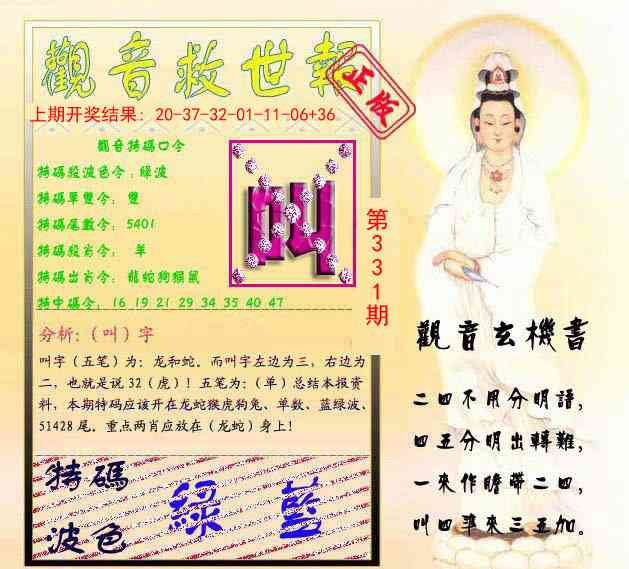 觀音救世報
正版
上期开奖结果：20-37-32-01-11-06+36
觀音特碼口令
特碼段波色令：綠波
特碼單雙令：雙
特碼尾數令：5401
特碼段肖令：單
特碼出肖令：龍蛇狗猴鼠
特中碼令：16 19 21 29 34 35 40 47
叫
第331期
分析:（叫）字
叫字（五笔）为：龙和蛇。而叫字左边为三，右边为
二，也就是说 32（虎）！五笔为:（单）总结本报资
料，本期特码应该开在龙蛇猴虎狗兔、单数、蓝绿波、
51428 尾。重点两肖应放在（龙蛇）身上！
特碼
波色
綠 藍
觀音玄機書
二四不用分明語，
四五分明出轉難，
一來作瞻帶二四，
叫四準來三五加。